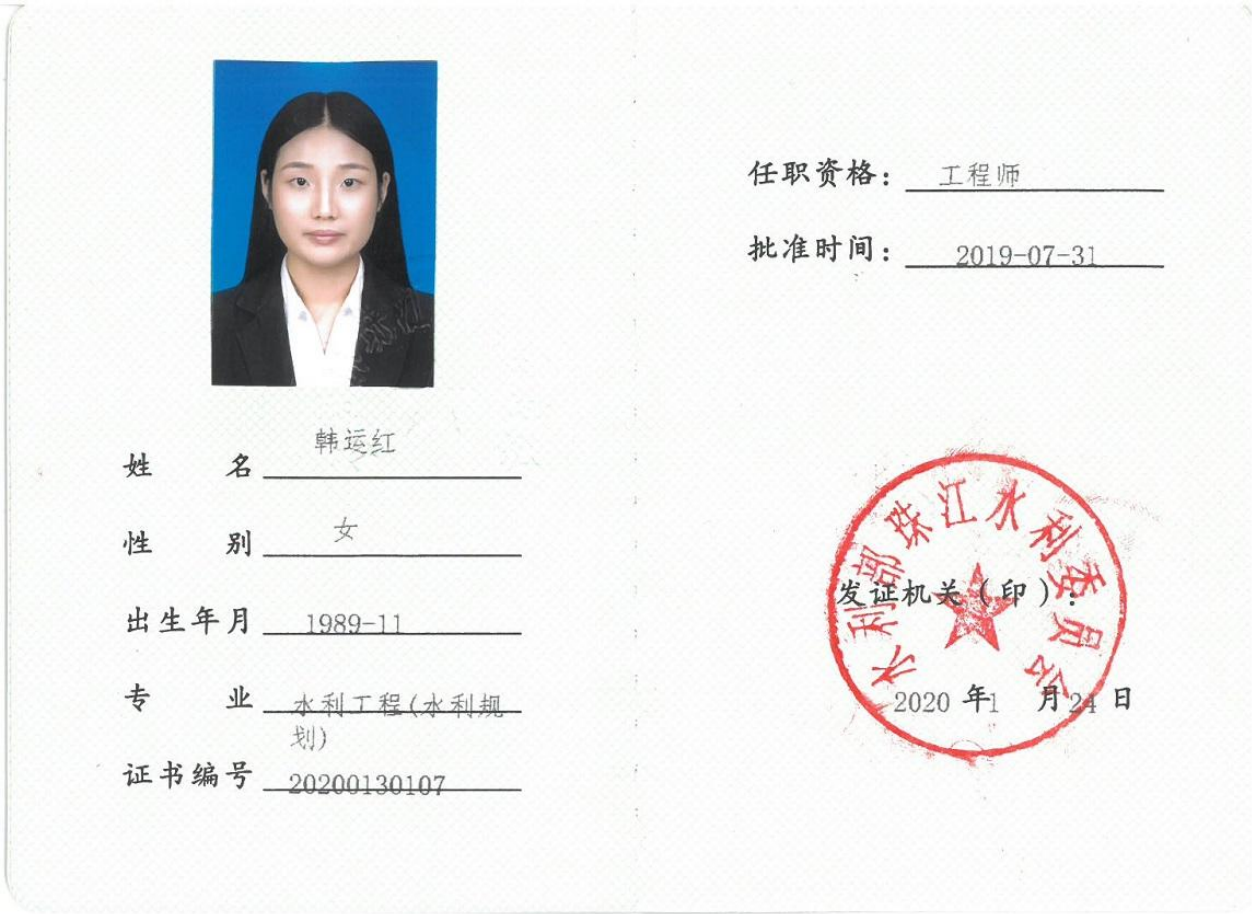 姓名 韩运红
性别 女
出生年月 1989-11
专业 水利工程(水利规
划)
证书编号 20200130107
任职资格： 工程师
批准时间： 2019-07-31
水利部珠江水利委员会
发证机关（印）：
2020 年1 月24 日